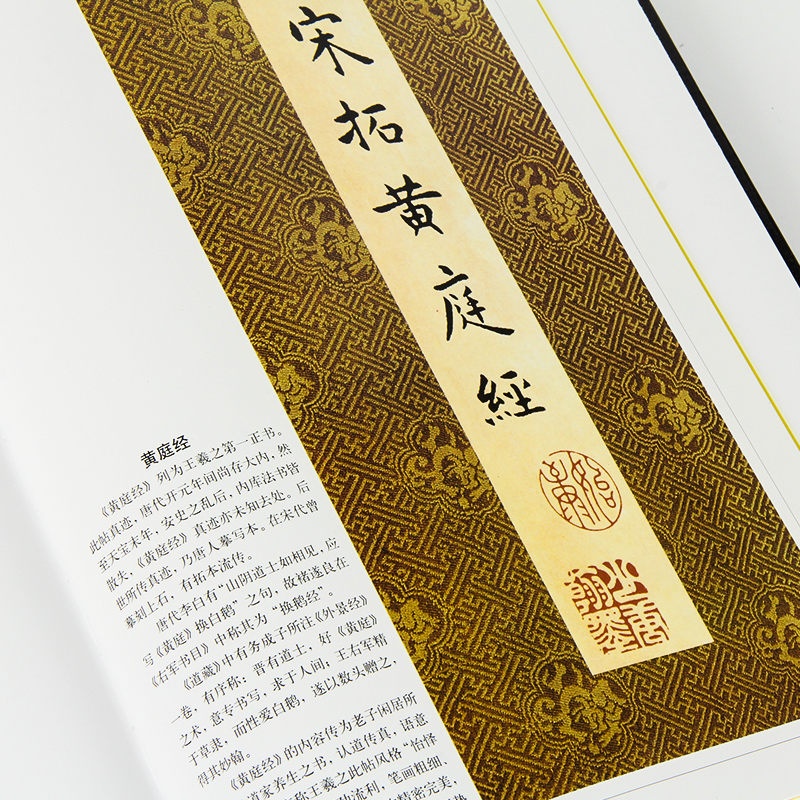 宋拓黄庭經
黄庭经
《黄庭经》列为王羲之第一正书。
此帖真迹，唐代开元年间尚存大内，然
至天宝末年，安史之乱后，内库法书皆
散失，《黄庭经》真迹亦未知去处。后
世所传真迹，乃唐人摹写本。在宋代曾
摹刻上石，有拓本流传。
唐代李白有“山阴道士如相见，应
写《黄庭》换白鹅”之句，故褚遂良在
《右军书目》中称其为“换鹅经”。
《道藏》中有务成子所注《外景经》
一卷，有序称：晋有道士，好《黄庭》
之术，意专书写，求于人间；王右军精
于草隶，而性爱白鹅，遂以数头赠之，
得其妙翰。
《黄庭经》的内容传为老子闲居所
道家养生之书，认道传真，语意
称王羲之此帖风格“怡怿
劲流利，笔画粗细，
精密完美，